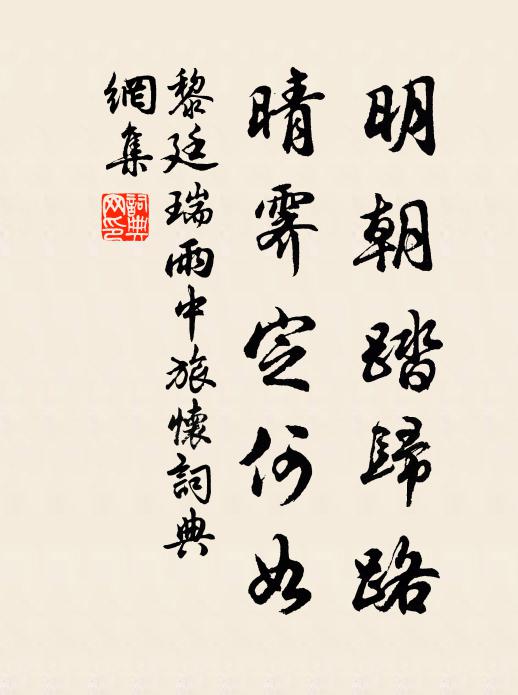 明朝踏歸路
晴霽定何如
黎廷瑞雨中旅懷詞典
網集
詞典
网印